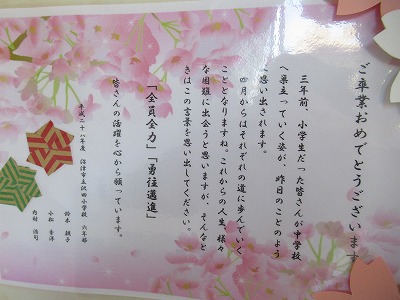 ご卒業おめでとうございます
三年前、小学生だった皆さんが中学校
へ巣立っていく姿が、昨日のことのよう
に思い出されます。
四月からはそれぞれの道に歩んでいく
こととなりますね。これからの人生、様々
な困難に出会うと思いますが、そんなと
きはこの言葉を思い出してください。
「全員全力」「勇往邁進」
皆さんの活躍を心から願っています。
平成二十八年度 沼津市立沢田小学校 六年部
鈴木 順子
小松 幸洋
内村 浩司